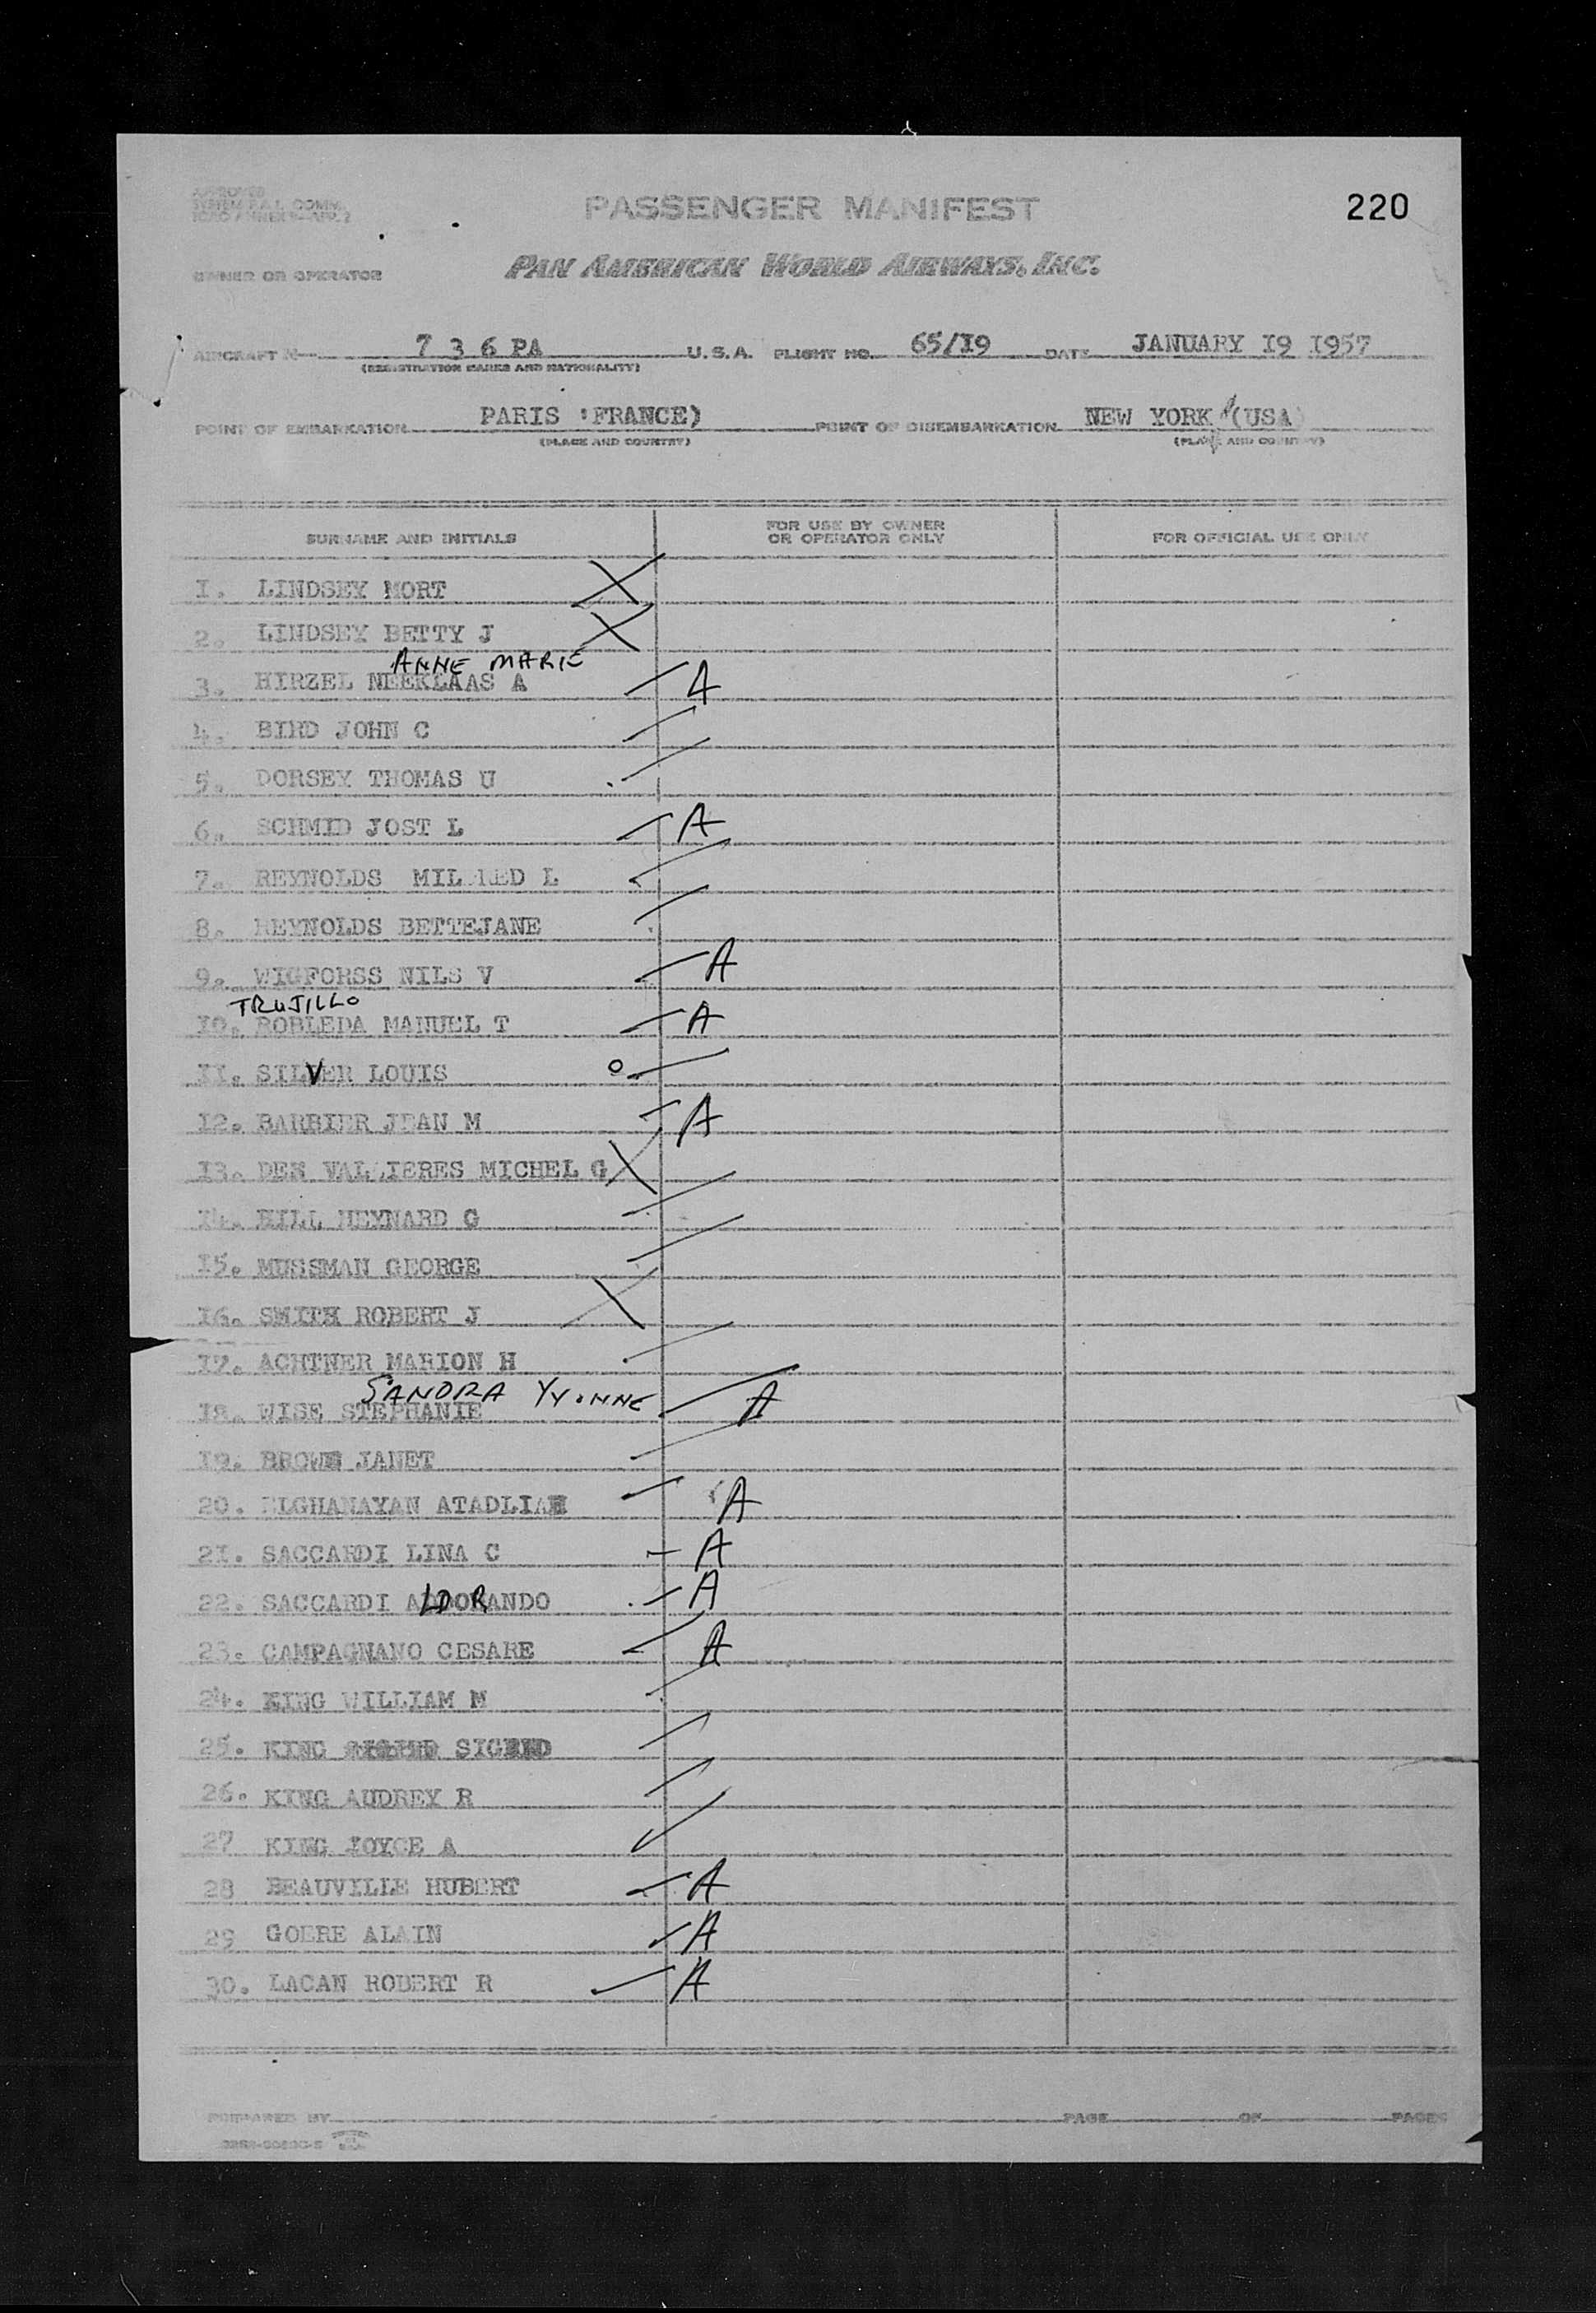 APPROVED
SYSTEM F.A.L. COMM.
ICAO ANNEX 9—APP. 2
PASSENGER MANIFEST
220
OWNER OR OPERATOR
PAN AMERICAN WORLD AIRWAYS, INC.
AIRCRAFT N— 7 3 6 PA U.S.A. FLIGHT NO. 65/I9 DATE JANUARY I9 I957
(REGISTRATION MARKS AND NATIONALITY)
POINT OF EMBARKATION PARIS (FRANCE) POINT OF DISEMBARKATION NEW YORK (USA)
(PLACE AND COUNTRY) (PLACE AND COUNTRY)
SURNAME AND INITIALS FOR USE BY OWNER OR OPERATOR ONLY FOR OFFICIAL USE ONLY
I. LINDSEY MORT X
2. LINDSEY BETTY J X
ANNE MARIE
3. HIRZEL NEEKLAAS A A
4. BIRD JOHN C
5. DORSEY THOMAS U
6. SCHMID JOST L A
7. REYNOLDS MILDRED L
8. REYNOLDS BETTEJANE
9. WIGFORSS NILS V A
TRUJILLO
I0. ROBLEDA MANUEL T A
II. SILVER LOUIS
I2. BARBIER JEAN M A
I3. DEN VALLIERES MICHEL G X
I4. HILL HEYNARD G
I5. MUSSMAN GEORGE
I6. SMITH ROBERT J X
I7. ACHTNER MARION H
SANDRA YVONNE
I8. WISE STEPHANIE A
I9. BROWN JANET
20. ELGHANAYAN ATADLIAH A
2I. SACCARDI LINA C A
22. SACCARDI ALDORANDO A
23. CAMPAGNANO CESARE A
24. KING WILLIAM M
25. KING SIGRID
26. KING AUDREY R
27 KING JOYCE A
28 BEAUVILLE HUBERT A
29 GOERE ALAIN A
30. LACAN ROBERT R A
PREPARED BY PAGE OF PAGES